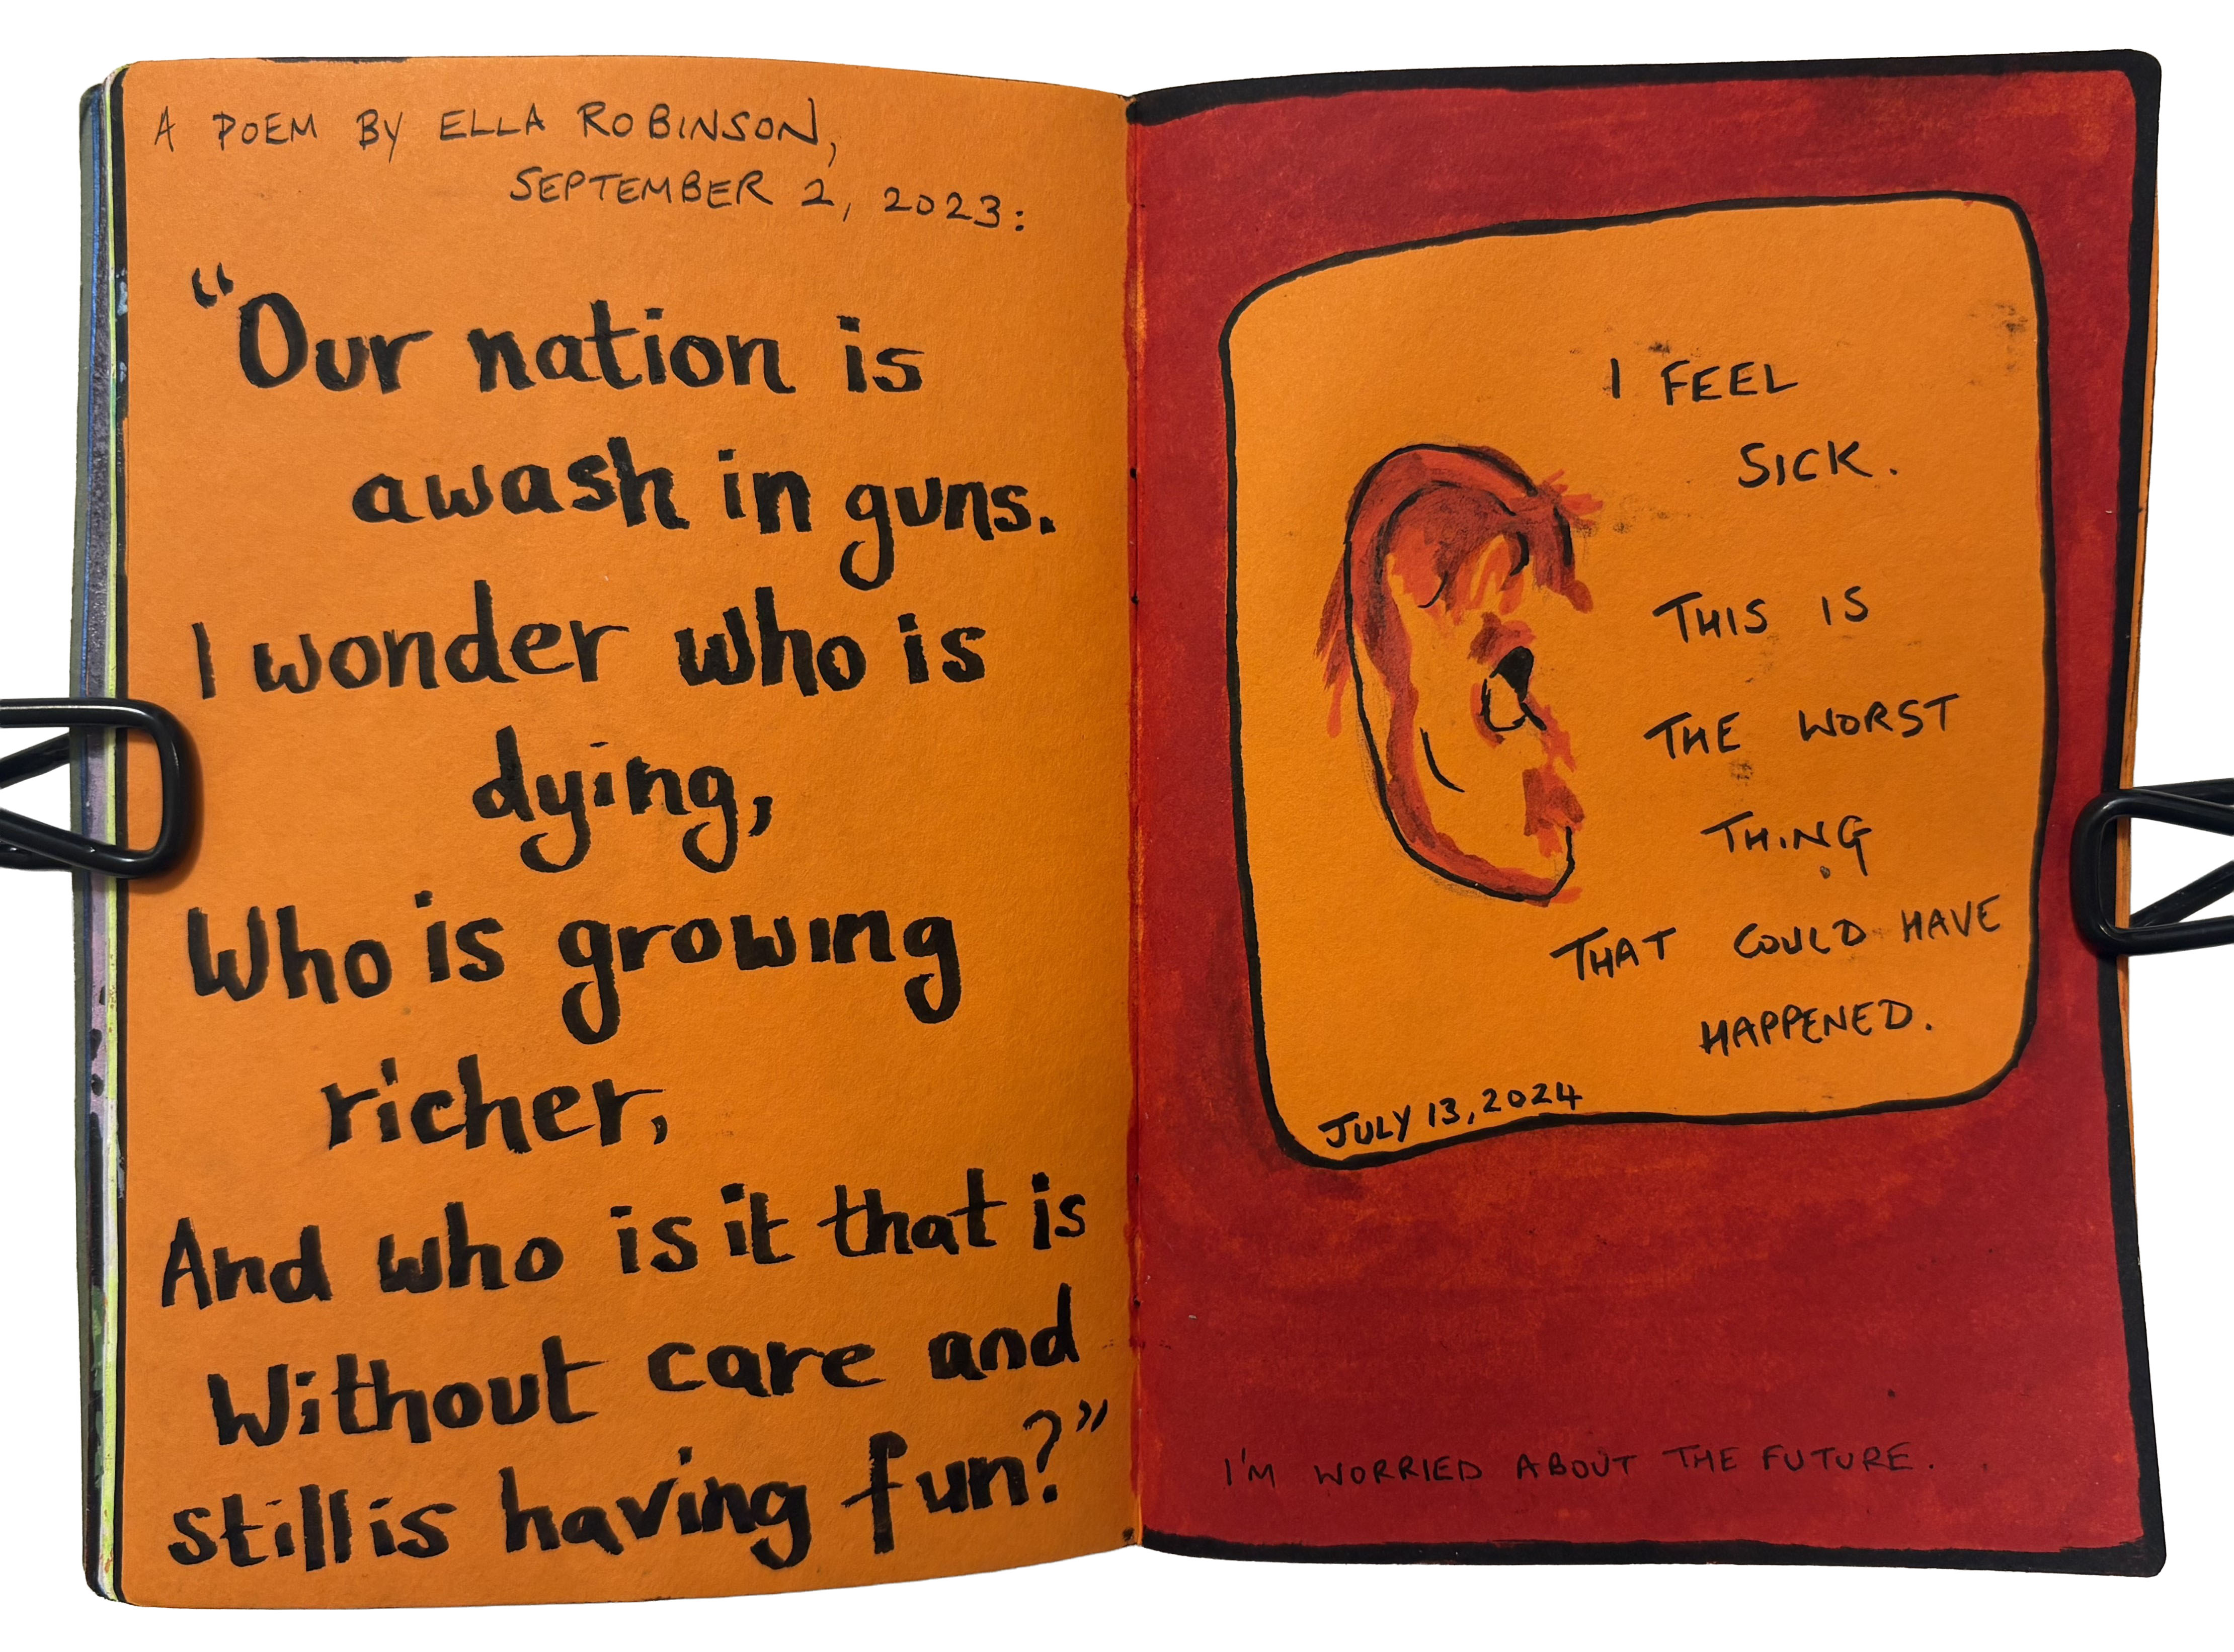 A POEM BY ELLA ROBINSON,
SEPTEMBER 2, 2023:
"Our nation is
awash in guns.
I wonder who is
dying,
Who is growing
richer,
And who is it that is
Without care and
still is having fun?"
I FEEL
SICK.
THIS IS
THE WORST
THING
THAT COULD HAVE
HAPPENED.
JULY 13, 2024
I'M WORRIED ABOUT THE FUTURE.